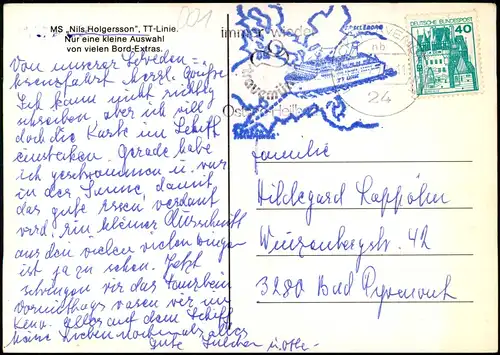 001
MS „Nils Holgersson", TT-Linie.
Nur eine kleine Auswahl
von vielen Bord-Extras.
Von unserer Schweden=
herzl. Grüße
Ich kann nicht richtig
schreiben, aber ich will
doch die Karte im Schiff
einstecken. Gerade habe
ich geschwommen u. war
in der Sonne, damit
das gute Essen verdaut
wird, ein kleiner Ausschnitt
aus den vielen vielen Dingen
ist ja zu sehen. Jetzt
schwingen wir das Tanzbein
Vormittags waren wir im
Keno. alles auf dem Schiff
nochmals alles
Gute
immer wieder
Travemünde
TRELLEBORG
24
DEUTSCHE BUNDESPOST
40
Familie
Hildegard
Winzenbergstr. 42
3280 Bad Pyrmont